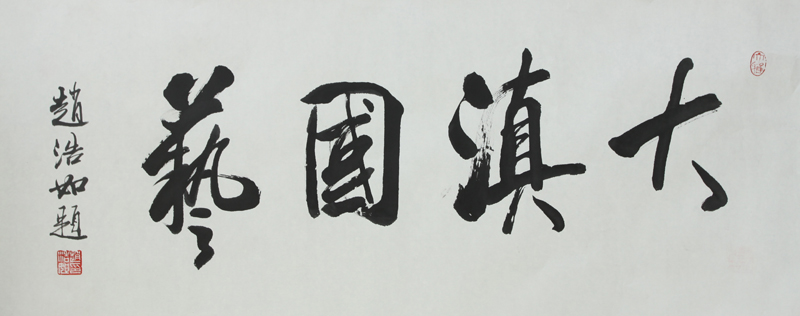 大滇國藝
趙浩如題